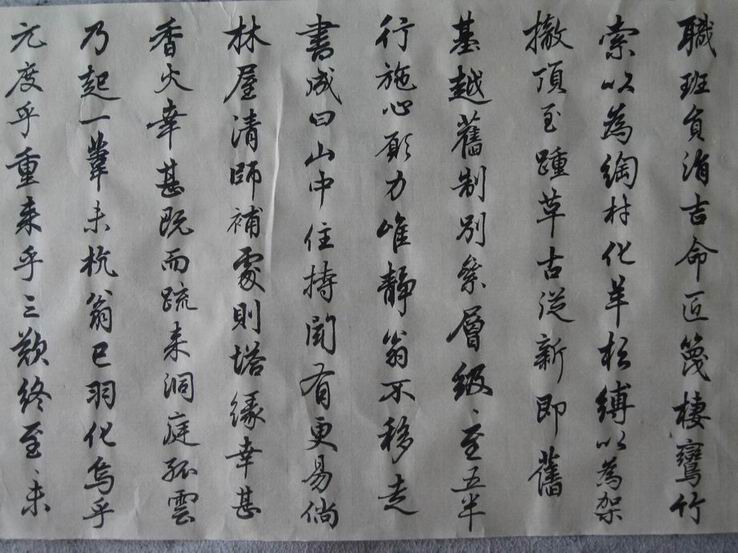 職班貟涓吉命匠篾棲鸞竹
索以為綯村化羊松縛以為架
撤頂至踵草古從新即舊
基越舊制別祭層級、至五半
行施心願力唯靜翁不移走
書成曰山中住持聞有更易倘
林屋清師補處則塔緣幸甚
香火幸甚既而疏来洞庭孤雲
乃起一葦未杭翁已羽化烏乎
元度乎重来乎三歎終至、未